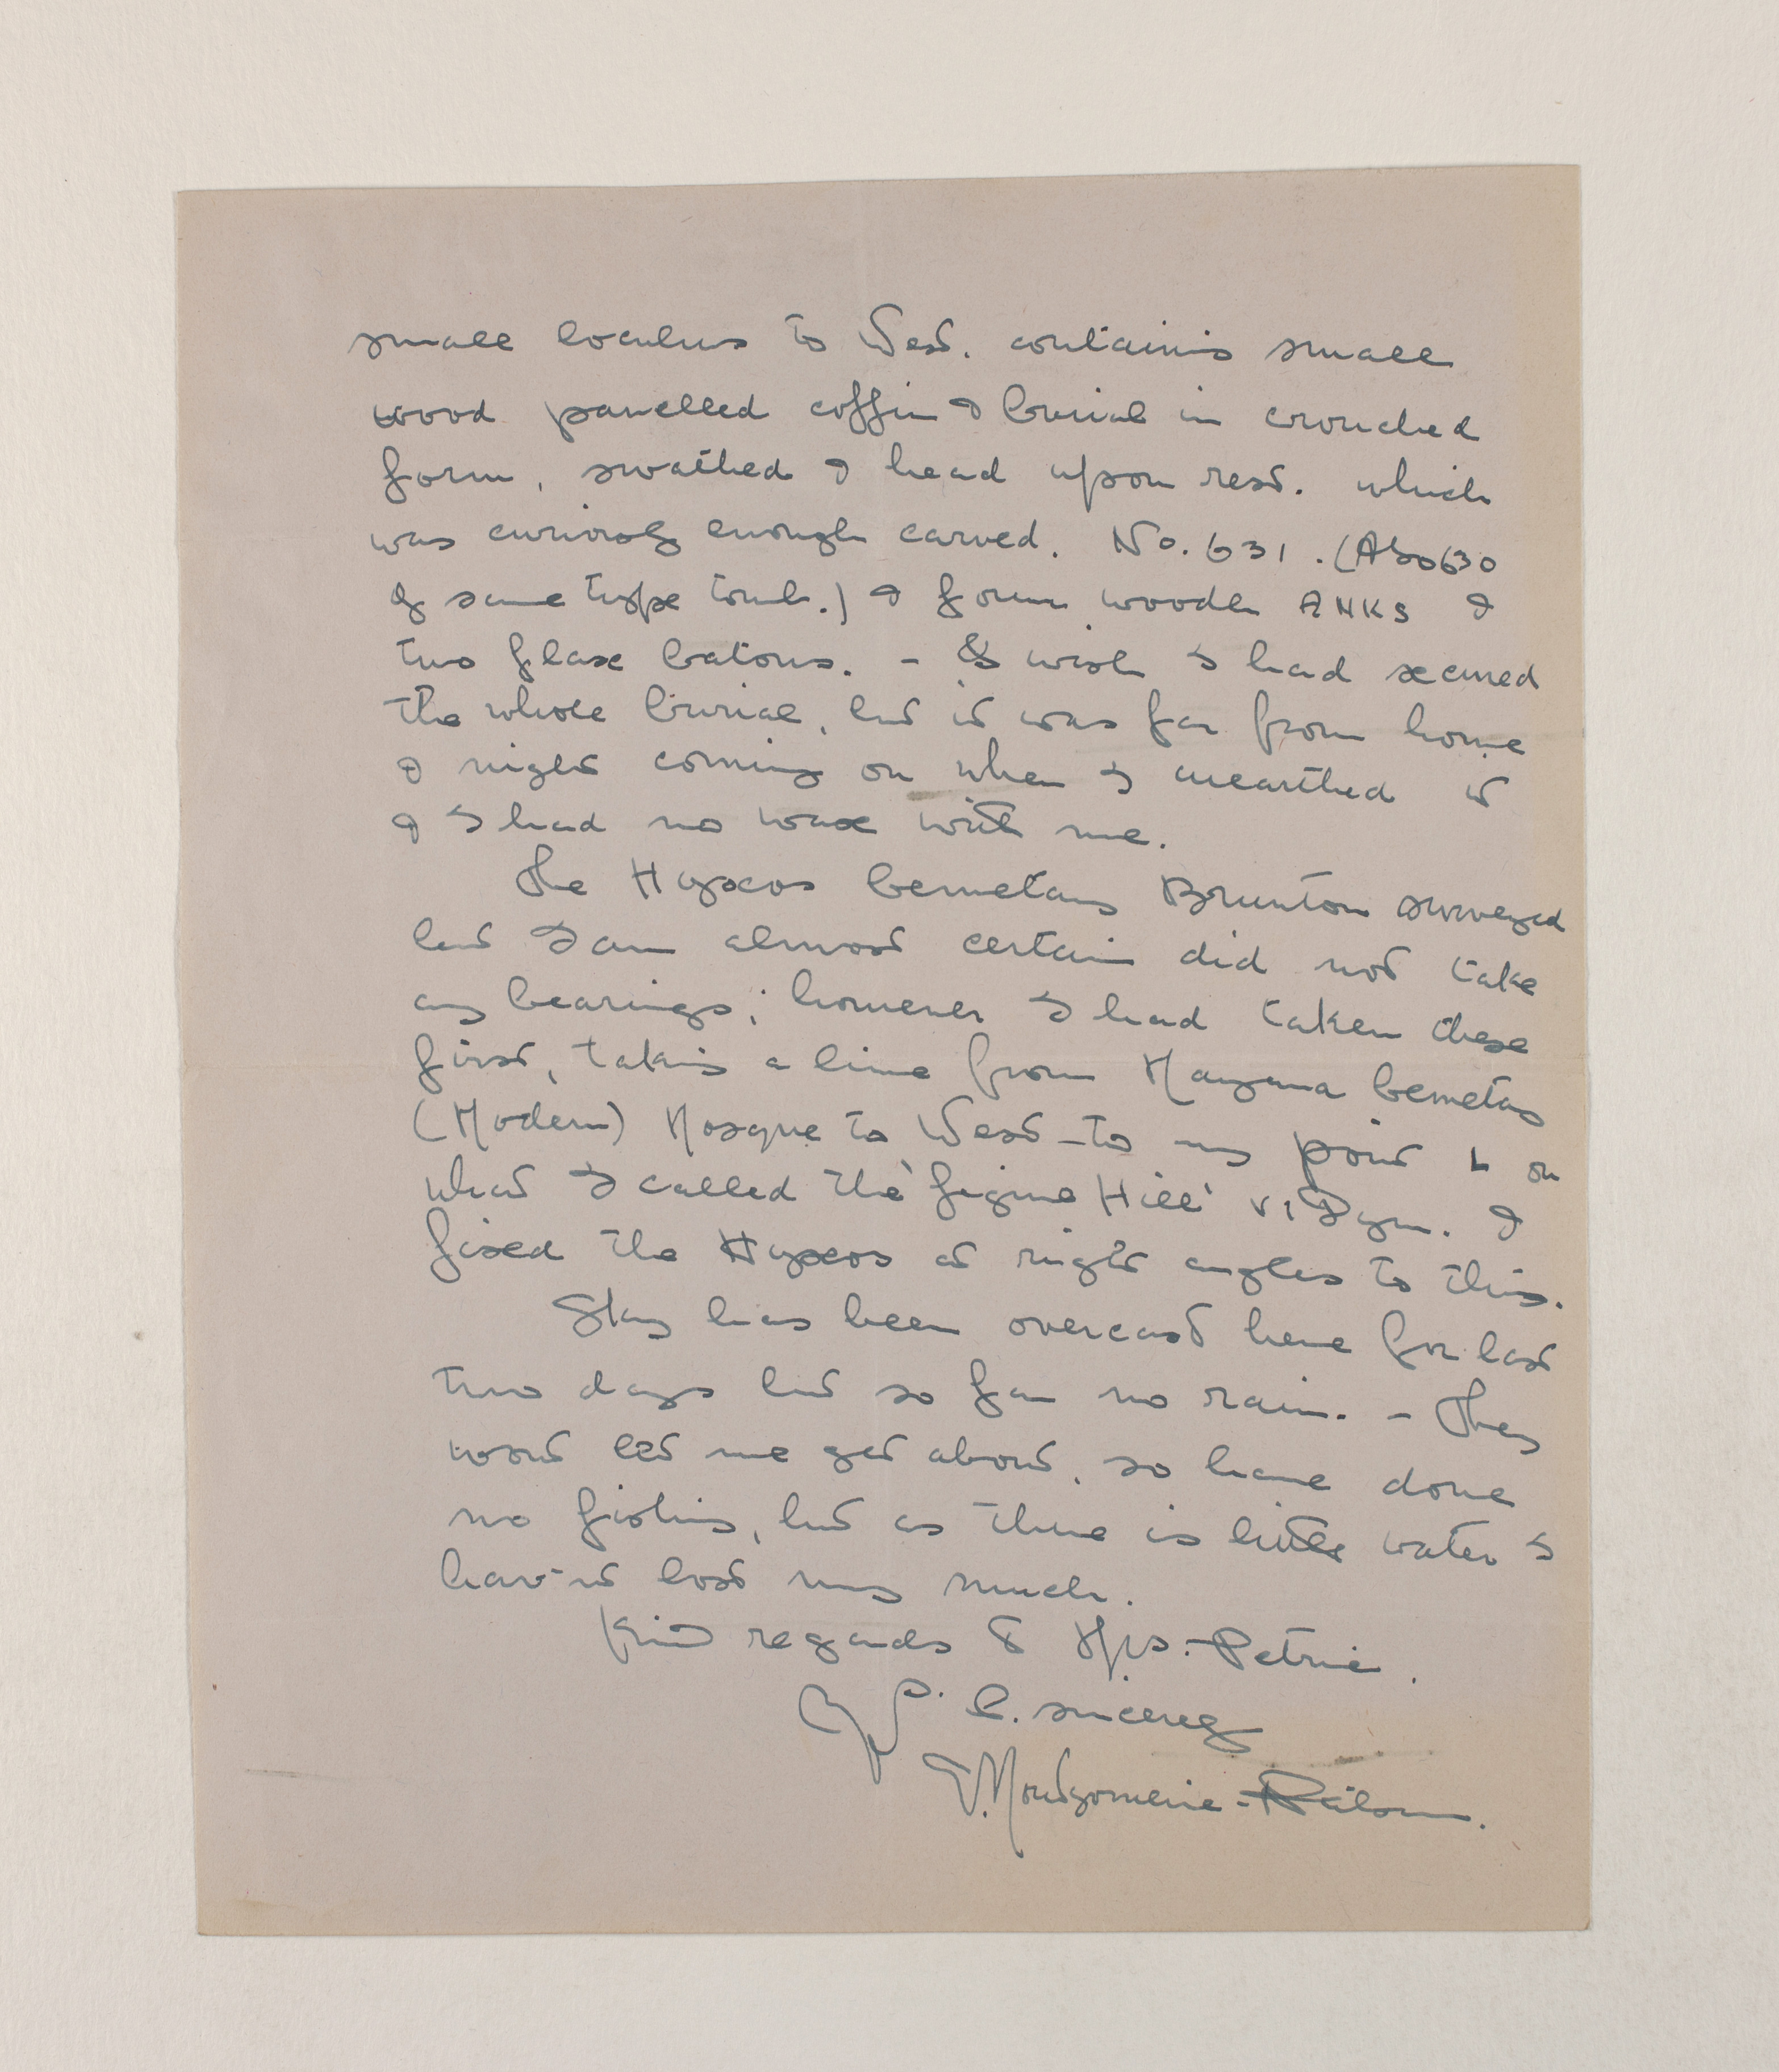 small loculus to West. containing small
wood panelled coffin & burial in crouched
form, swathed & head upon rest. which
was curiously enough carved. No. 631. (Also 630
of same type tomb.) & four wooden ANKS &
two flax batons. - & wish I had secured
the whole burial, but it was far from home
& night coming on when I unearthed it
& I had no wax with me.
The Hyxsos Cemetary Brunton surveyed
but I am almost certain did not take
any bearings; however I had taken these
first, taking a line from Mayana Cemetary
(Modern) Mosque to West - to my point L on
what I called the 'figure Hill' VI Dyn. &
fixed the Hyxsos at right angles to this.
Sky has been overcast here for last
two days but so far no rain. - They
wont let me get about, so have done
no fishing, but as there is little water I
hav-nt lost very much.
Kind regards to Mrs. Petrie.
sincerely
Montgomerie-Neilson.